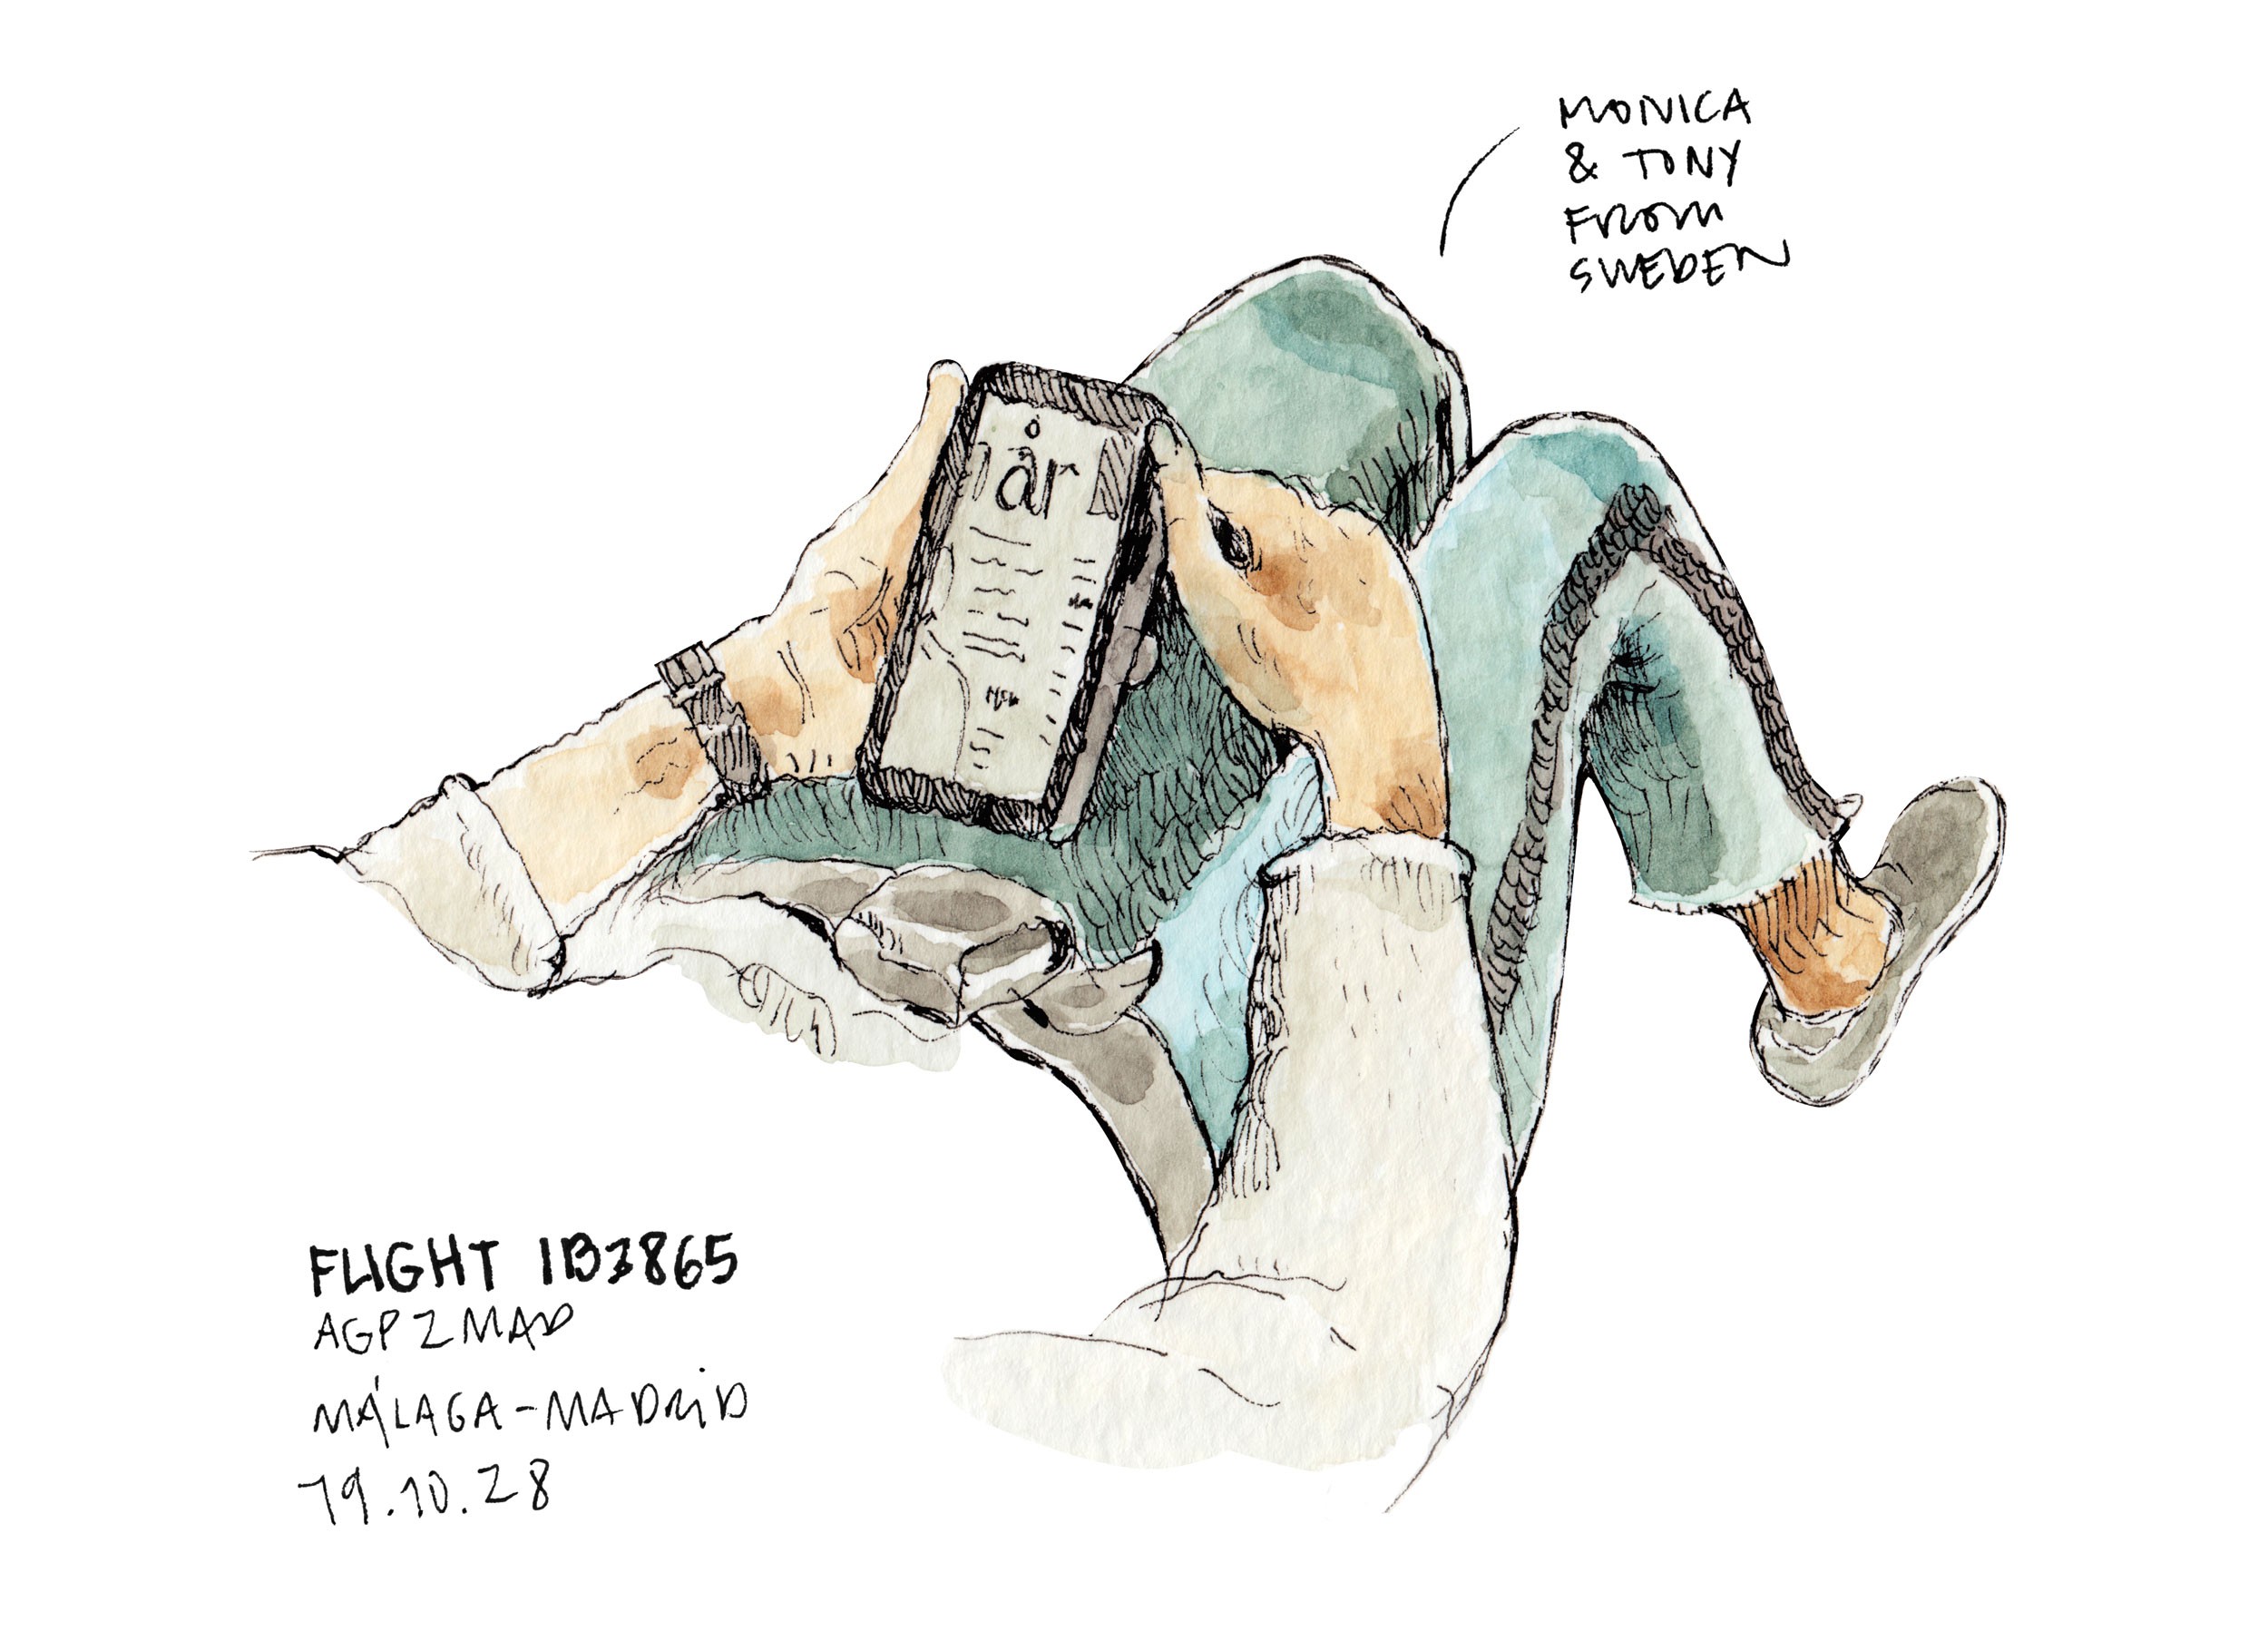 MONICA
& TONY
FROM
SWEDEN
år
FLIGHT IB3865
AGP2MAD
MÁLAGA-MADRID
19.10.28